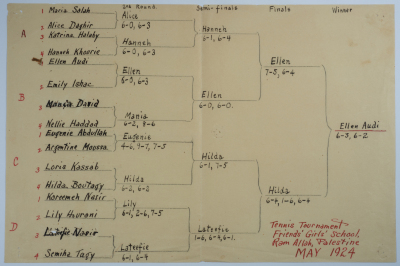 2nd Round
Semi-finals
Finale
Winner
A
1 Maria Salah
2 Alice Daghir
3 Katrina Halaby
4 Hanneh Khourie
Alice
6-0, 6-3
Hanneh
6-0, 6-3
Hanneh
6-1, 6-4
B
Ellen Audi
2 Emily Ishac
3 David
4 Nellie Haddad
Ellen
6-3
Mania
6-2, 8-6
Ellen
6-0, 6-0.
Ellen
7-5, 6-4
C
1 Eugenie Abdullah
2 Argentine Moussa
3 Loris Kassab
4 Hilda Boutagy
Eugenie
4-6, 9-7, 7-5
Hilda
Hilda
6-1, 7-5
D
1 Kareemeh Nasir
2 Lily Hourani
3 Lateefie Nasir
4 Semiha Tagy
Lily
6-1, 2-6, 7-5
Lateefie
6-1, 6-4
Lateefie
1-6, 6-4, 6-1.
Hilda
6-4, 1-6, 6-4
Ellen Audi
6-3, 6-2
Tennis Tournament
Friends' Girls' School,
Ram Allah, Palestine
MAY 1924